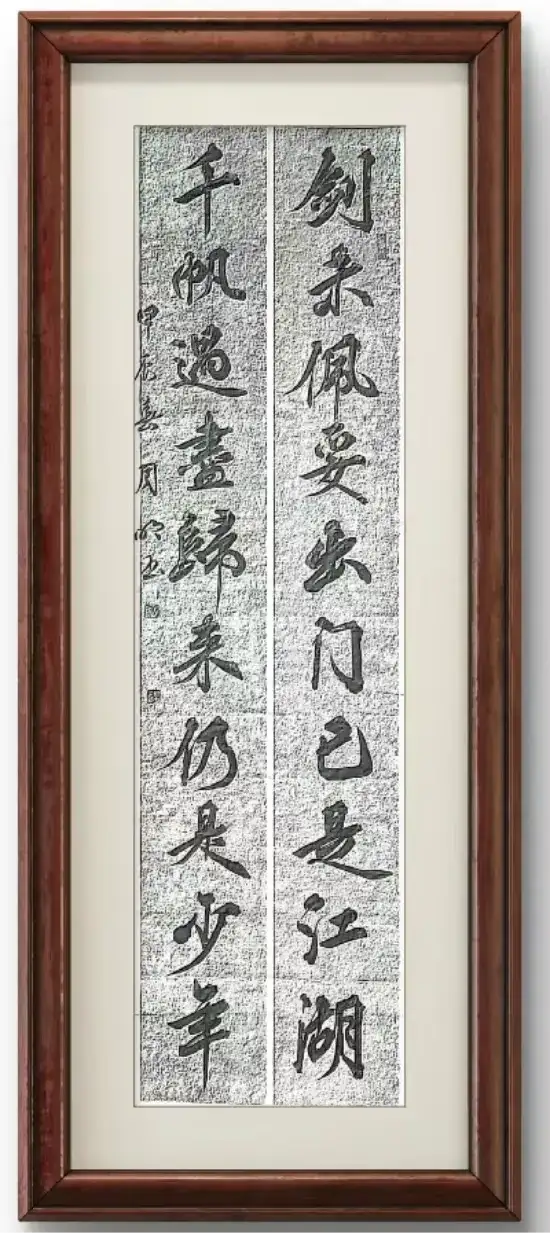 剑未佩妥出门已是江湖
千帆過盡歸来仍是少年
甲辰春